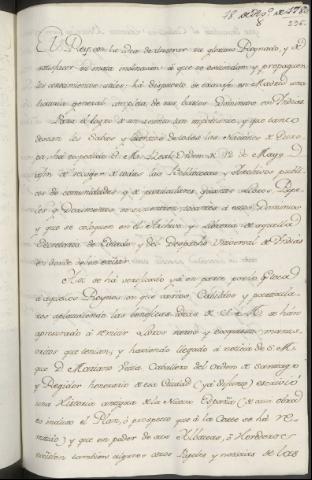 18 de Ag.º de 1780
236.
El Rey con la idea de ilustrar su glorioso Reynado, y de
satisfacer su innata inclinacion á que se extiendan y propaguen
los conocimientos utiles, ha dispuesto se escriva en Madrid una
historia general completa de sus bastos Dominios en Indias.
Para el logro de un asunto tan importante, y que tanto
desean los Sabios y literatos de todas las Naciones de Euro-
pa, ha expedido S. M. Real Orden de 12 de Mayo
afin de recoger de todas las Bibliotecas y Archivos publi-
cos de comunidades y de particulares quantos Libros, Pape-
les y Documentos se encuentren tocantes á estos Dominios
y que se coloquen en el Archivo y Libreria de aquella
Secretaria de Estado y del Despacho Universal de Indias
en donde deben existir.
Asi se ha verificado ya en parte por lo
á aquellos Reynos en que varios Cabildos y particula-
res
apresurado á remitir Libros raros y manus-
critos que tenian, y haviendo llegado á noticia de S. M.
que D. Mariano Veitia Caballero del Orden de Santiago
y Regidor honorario de esa Ciudad (ya difunto) escribió
una Historia antigua de la Nueva España (de cuia obra
incluio el Plan, ó prospecto que á la Corte se ha re-
mitido) y que en poder de sus Albaceas, ó Herederos
existen tambien algunos otros Papeles y noticias de las